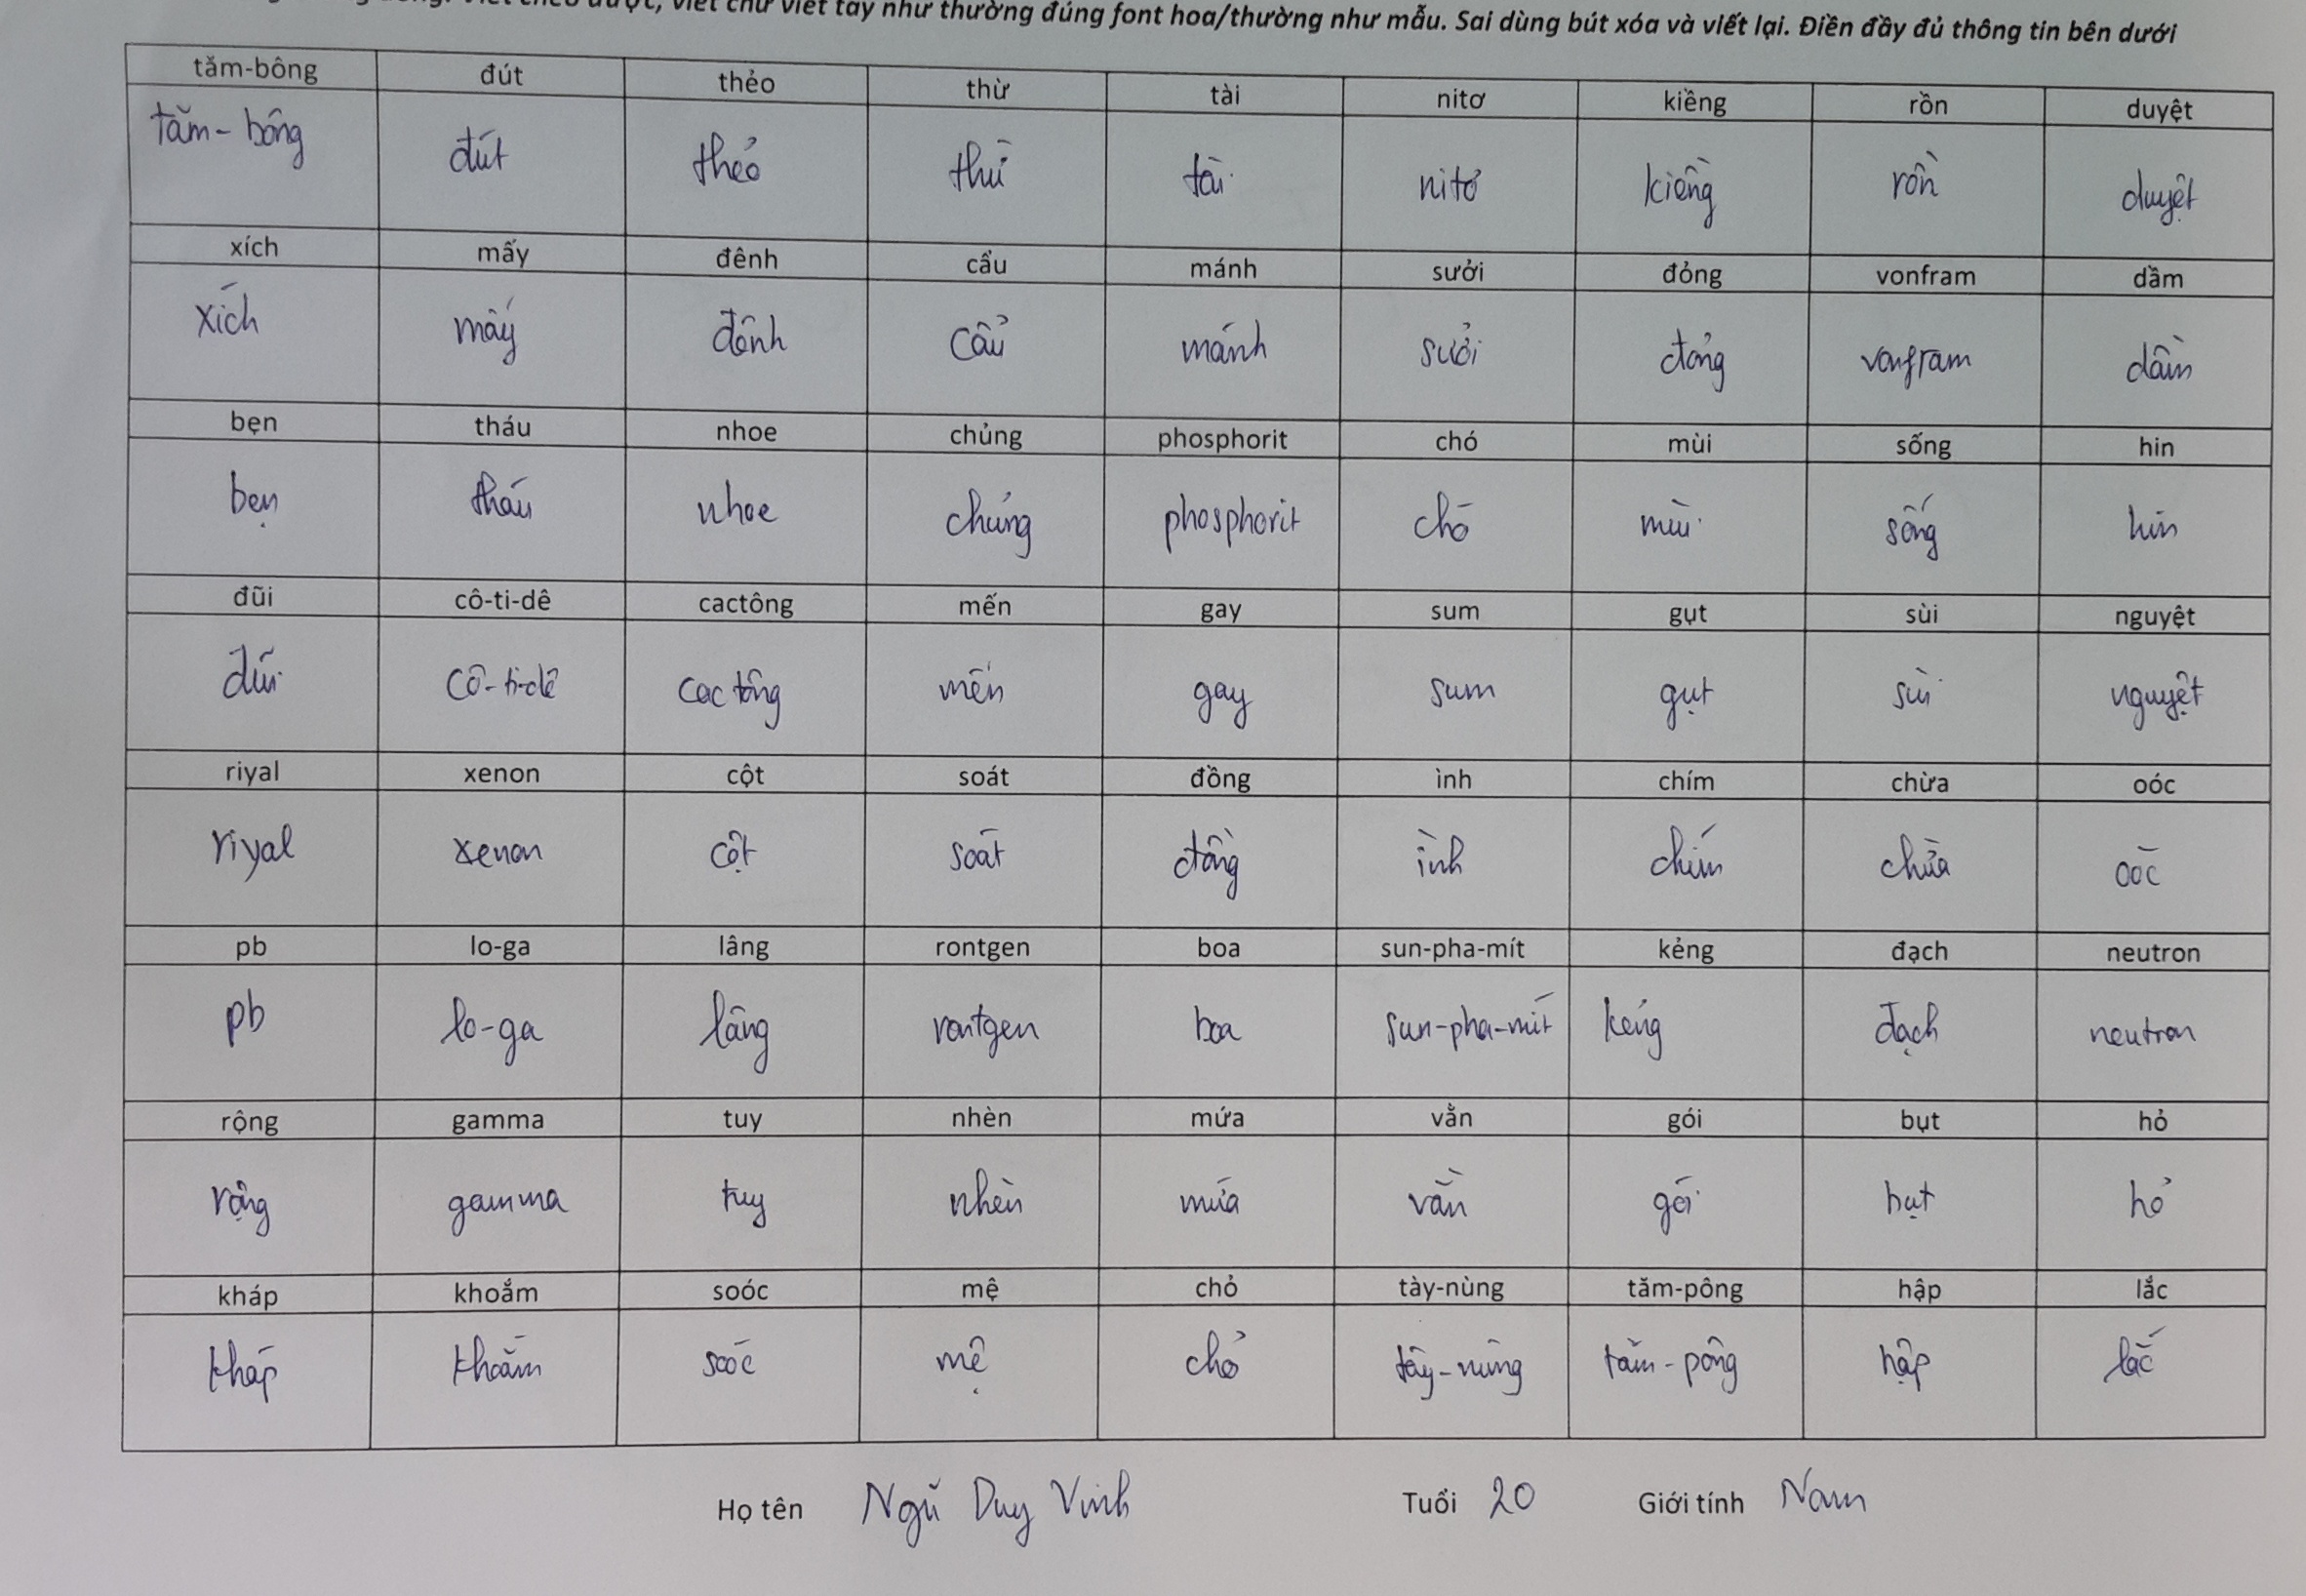 viết chữ viết tay như thường đúng font hoa/thường như mẫu. Sai dùng bút xóa và viết lại. Điền đầy đủ thông tin bên dưới
tăm-bông đút thẻo thừ tài nitơ kiềng rồn duyệt
tăm-bông đút thẻo thừ tài nitơ kiềng rồn duyệt
xích mấy đênh cẩu mánh sưởi đỏng vonfram dầm
xích mấy đênh cẩu mánh sưởi đỏng vonfram dầm
bẹn tháu nhoe chủng phosphorit chó mùi sống hin
bẹn tháu nhoe chủng phosphorit chó mùi sống hin
đũi cô-ti-dê cactông mến gay sum gụt sùi nguyệt
đũi cô-ti-dê cactông mến gay sum gụt sùi nguyệt
riyal xenon cột soát đồng ình chím chừa oóc
riyal xenon cột soát đồng ình chím chừa oóc
pb lo-ga lâng rontgen boa sun-pha-mít kẻng đạch neutron
pb lo-ga lâng rontgen boa sun-pha-mít kẻng đạch neutron
rộng gamma tuy nhèn mứa vằn gói bụt hỏ
rộng gamma tuy nhèn mứa vằn gói bụt hỏ
kháp khoắm soóc mệ chỏ tày-nùng tăm-pông hập lắc
kháp khoắm soóc mệ chỏ tày-nùng tăm-pông hập lắc
Họ tên Ngũ Duy Vinh Tuổi 20 Giới tính Nam